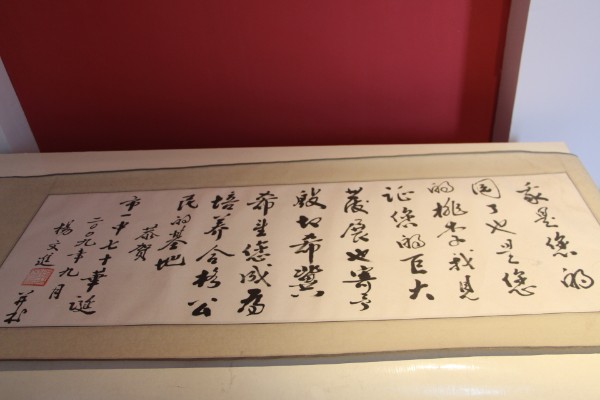 我是您的
园丁也是您
的桃李我見
证您的巨大
發展也寄予
殷切希冀
希望您成為
培养合格公
民的基地
恭賀
市一中七十華诞
二〇〇九年九月
楊文進